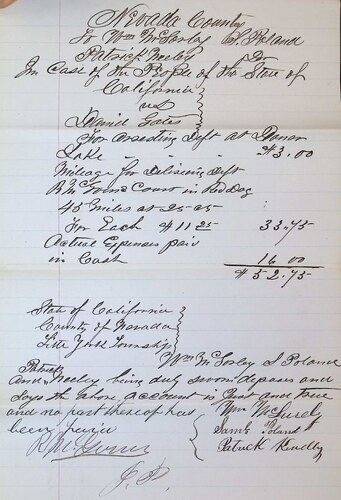 Nevada County
To Wm McSorley S. Poland
Patrick Neeley Dr
In Case of the People of the State of
California
vs
Daniel Gates
For Arresting Deft at Donar
Lake - - - $3.00
Mileage for Delivering Deft
Court in Red Dog
45 Miles at 25 cts
For Each $11 25 33.75
Actual Expenses paid
in Cash 16 00
$52.75
State of California
County of Nevada
Little York Township
Wm McSorley S Poland
Patrick
and Neeley being duly sworn deposes and
says the above account is Just and True
and no part thereof has
been paid
Wm McSorely
Saml Poland
Patrick
J. P.